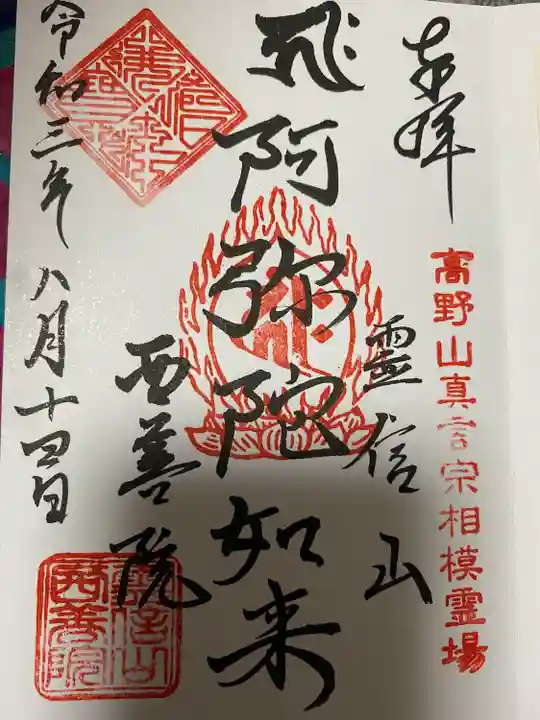 奉拝
高野山真言宗相模霊場
霊信山
飛阿弥陀如来
西善院
令和三年八月十四日
霊信山
西善院